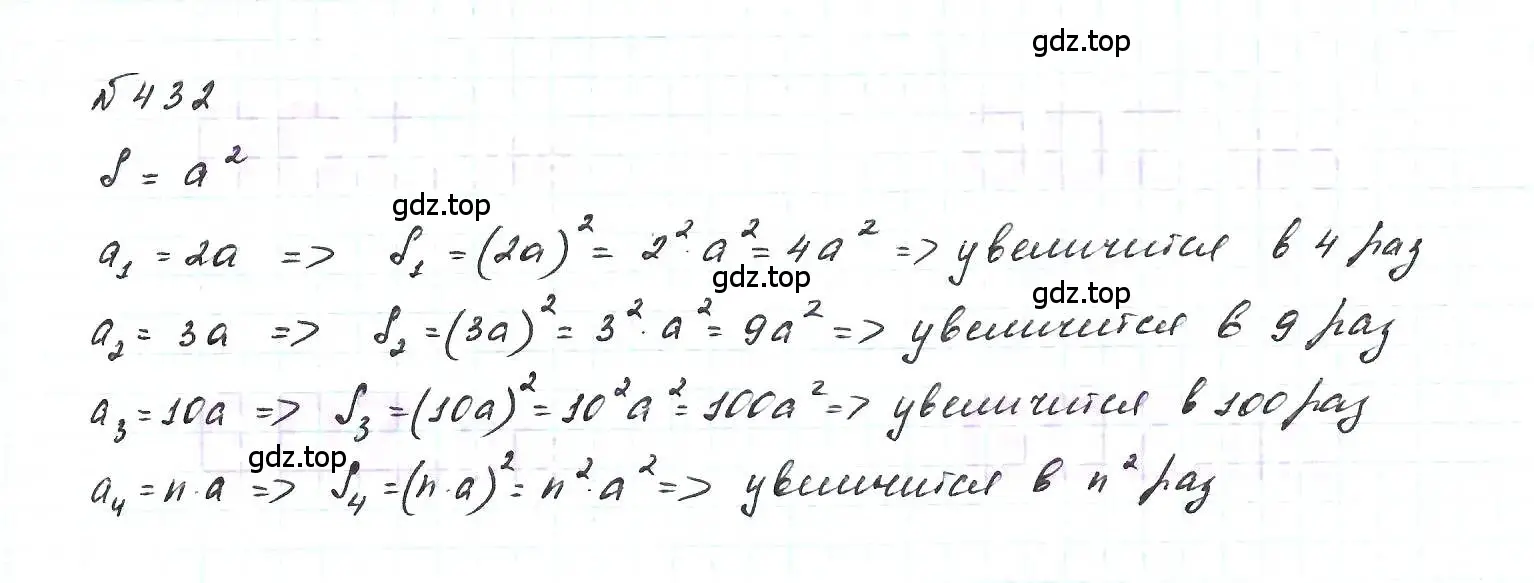 gdz.top
№ 432
S = a²
gdz.top
a₁ = 2a => S₁ = (2a)² = 2² · a² = 4a² => увеличится в 4 раз
gdz.top
gdz.top
a₂ = 3a => S₂ = (3a)² = 3² · a² = 9a² => увеличится в 9 раз
a₃ = 10a => S₃ = (10a)² = 10²a² = 100a² => увеличится в 100 раз
gdz.top
a₄ = n · a => S₄ = (n · a)² = n² · a² => увеличится в n² раз